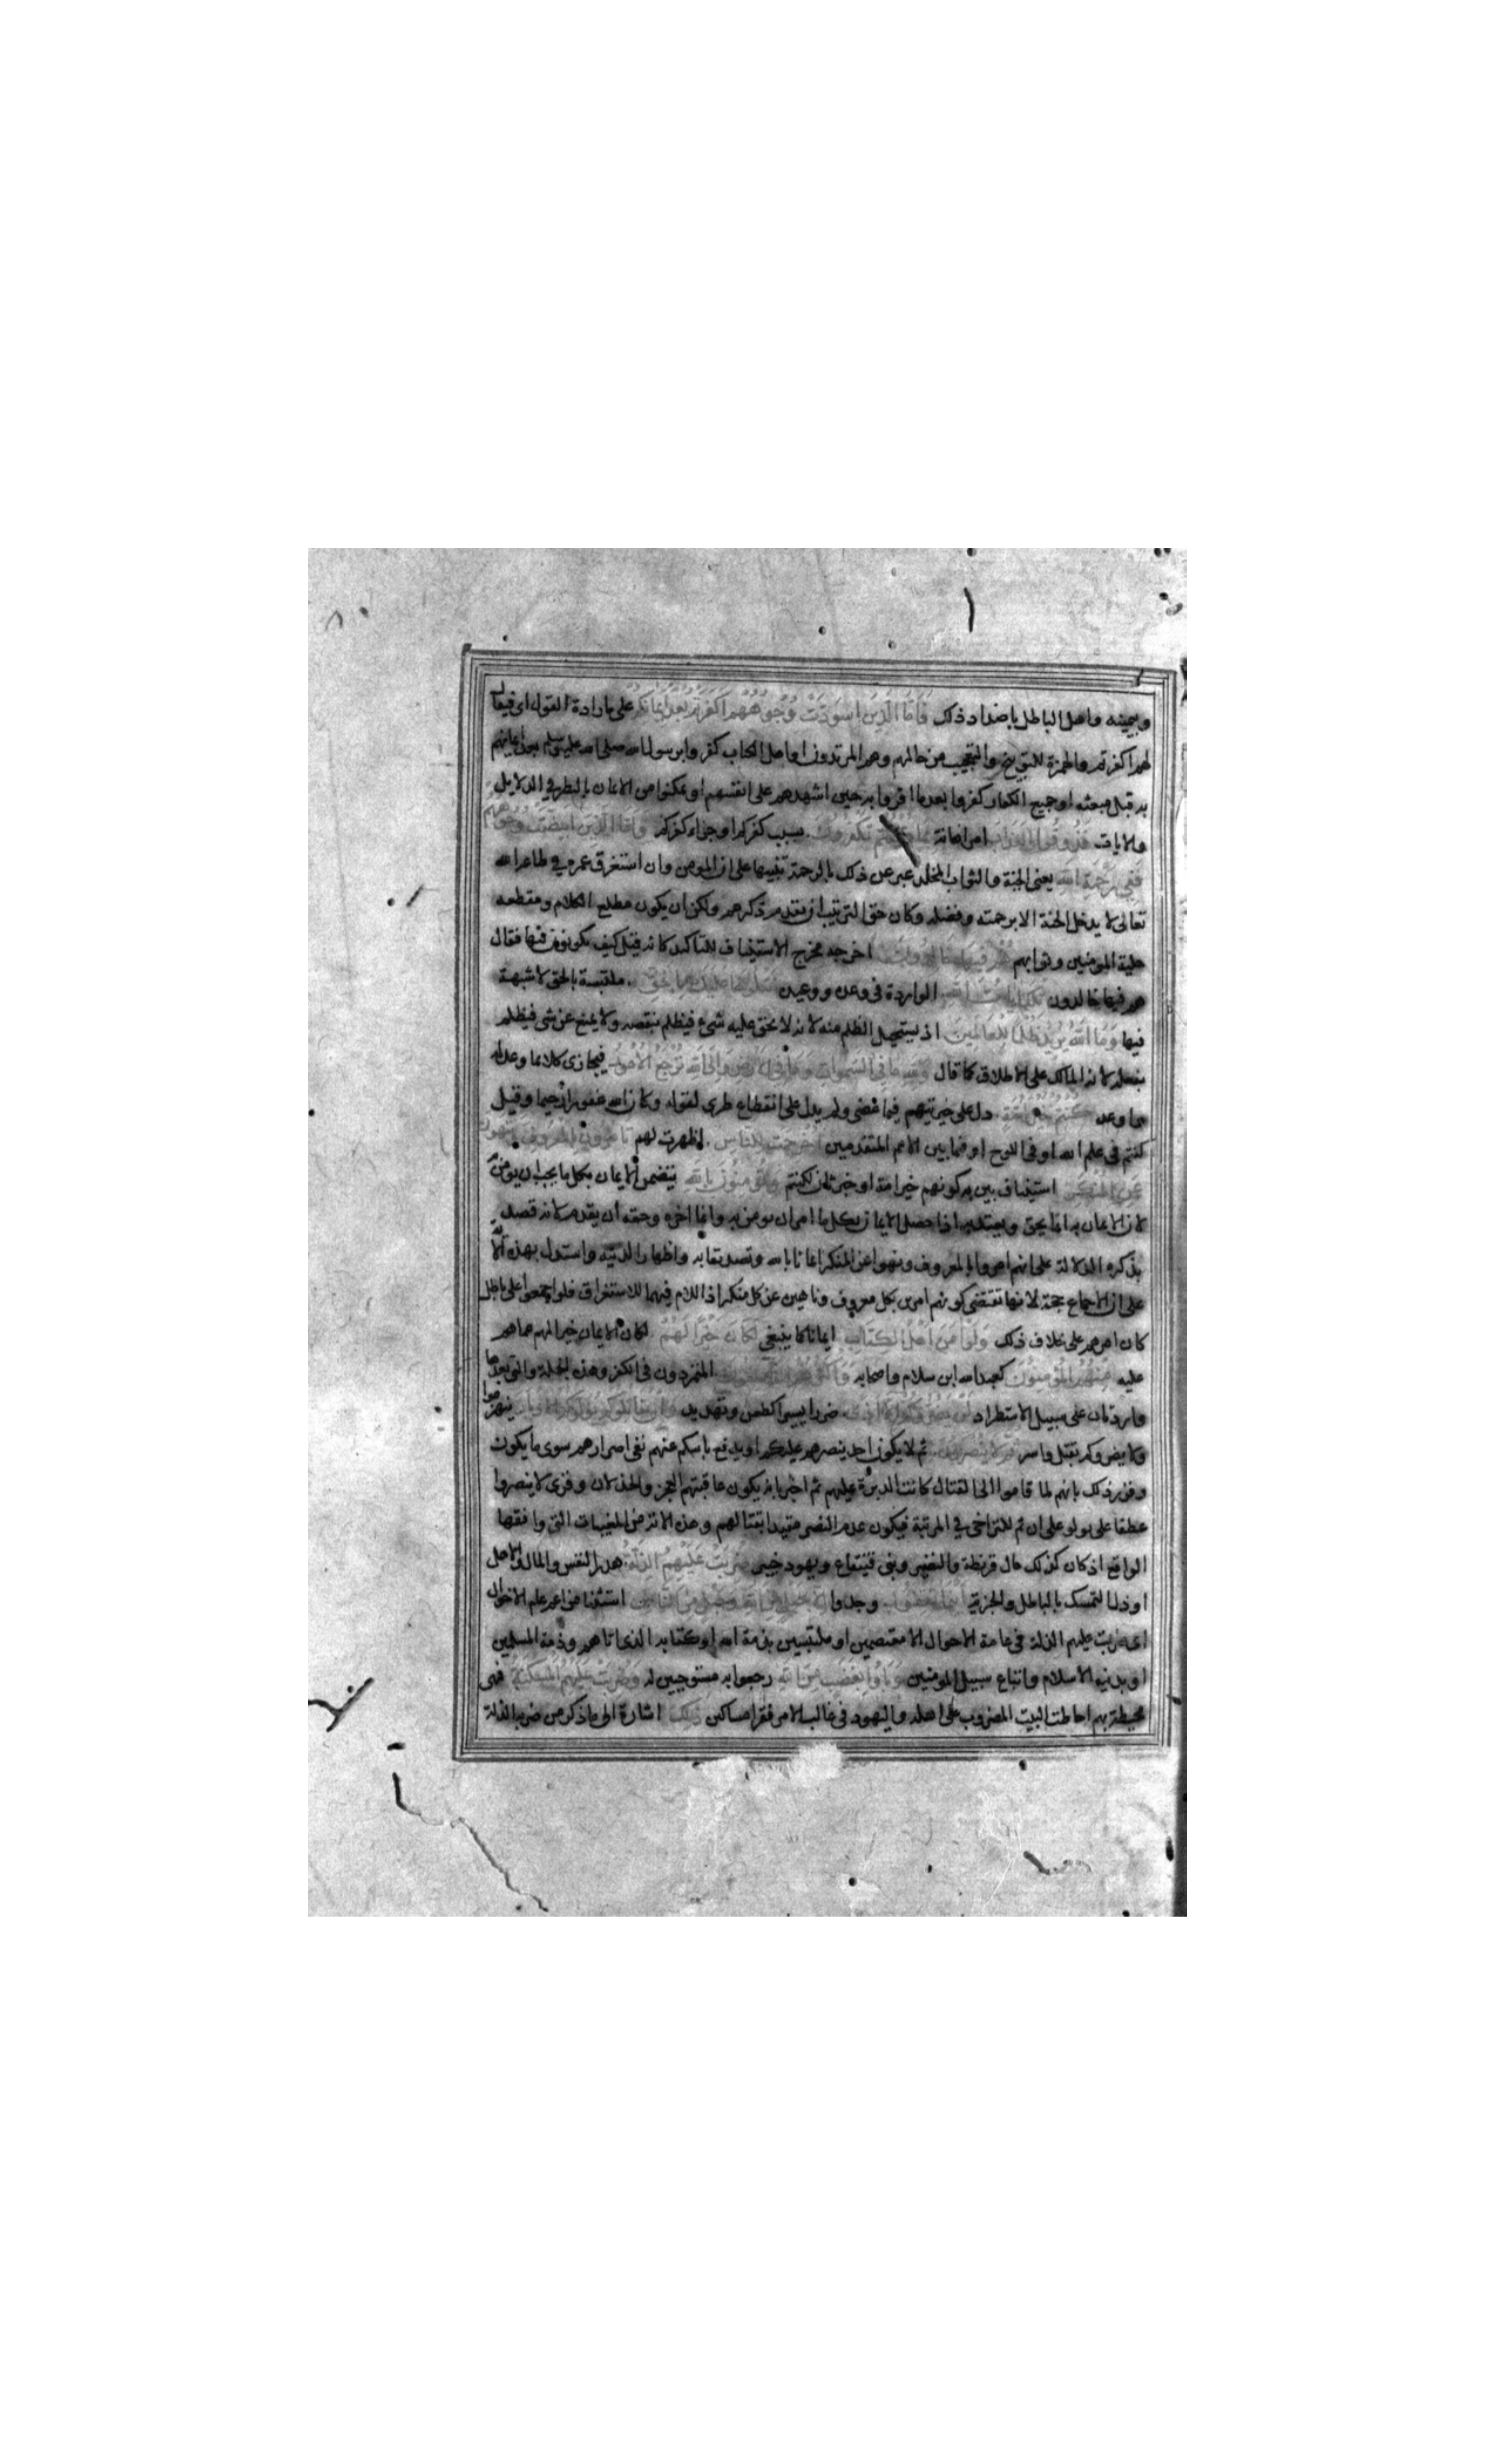 وبيمينه واهل الباطل باضداد ذلك فَاَمَّا الَّذِينَ اسْوَدَّتْ وُجُوهُهُم اَكَفَرْتُم بَعْدَ اِيمَانِكُم على ارادة القول اى فيقال
لهم اكفرتم والهمزة للتوبيخ والتعجيب من حالهم وهم المرتدون او اهل الكتاب كفروا برسول الله صلى الله عليه وسلم بعد ايمانهم
به قبل مبعثه او جميع الكفار كفروا بعد ما اقروا به حين اشهدهم على انفسهم او تمكنوا من الايمان بالنظر في الدلايل
والايات فَذُوقُوا العَذَابَ امر اهانة بما كنتم تكفرون بسبب كفركم او جزاء كفركم وَاَمَّا الَّذِينَ ابْيَضَّتْ وُجُوهُهُم
فَفِي رَحْمَةِ اللهِ يعنى الجنة والثواب المخلد عبر عن ذلك بالرحمة تنبيها على ان المومن وان استغرق عمره في طاعة الله
تعالى لا يدخل الجنة الا برحمته وفضله وكان حق الترتيب ان يقدم ذكرهم ولكن ان يكون مطلع الكلام ومقطعه
حلية المومنين وثوابهم هُمْ فِيهَا خَالِدُونَ اخرجه مخرج الاستيناف للتاكيد كانه قيل كيف يكونون فيها فقال
هم فيها خالدون تلك ايات الله الواردة في وعده ووعيده نتلوها عليك بالحق ملتبسة بالحق لا شبهة
فيها وَمَا اللهُ يُرِيدُ ظُلْمًا لِلْعَالَمِينَ اذ يستحيل الظلم منه لانه لا يحق عليه شئ فيظلم بنقصه ولا يمنع عن شى فيظلم
بفعله لانه المالك على الاطلاق كما قال وَلِلهِ مَا فِي السَّمَواتِ وَمَا فِي الاَرْضِ وَاِلَى اللهِ تُرْجَعُ الاُمُورُ فيجازى كلا بما وعد له
واوعد كُنْتُمْ خَيْرَ اُمَّةٍ دل على خيريتهم فيما مضى ولم يدل على انقطاع طرى لقوله وكان الله غفورا رحيما وقيل
كنتم في علم الله او في اللوح او فيما بين الامم المتقدمين اُخْرِجَتْ لِلنَّاسِ اظهرت لهم تَاْمُرُونَ بِالمَعْرُوفِ وَتَنْهَوْنَ
عَنِ المُنْكَرِ استيناف بين به كونهم خير امة او خبر ثان لكنتم وَتُؤْمِنُونَ بِاللهِ يتضمن الايمان بكل ما يجب ان يومن به
لان الايمان به انما يحق ويعتد به اذا حصل الايمان بكل ما امر ان يومن به وانما اخره وحقه ان يقدم لانه قصد
بذكره الدلالة على انهم امروا بالمعروف ونهوا عن المنكر ايمانا بالله وتصديقا به واظهارا لدينه واستدل بهذه الاية
على ان الاجماع حجة لانها تقتضى كونهم امرين بكل معروف وناهين عن كل منكر اذ اللام فيهما للاستغراق فلو اجمعوا على باطل
كان امرهم على خلاف ذلك وَلَوْ اٰمَنَ اَهْلُ الكِتَابِ ايمانا كما ينبغى لَكَانَ خَيْرًا لَهُمْ لكان الايمان خيرا لهم مما هم
عليه مِنْهُمُ المُؤْمِنُونَ كعبد الله ابن سلام واصحابه وَاَكْثَرُهُمُ الفَاسِقُونَ المتمردون في الكفر وهذه الجملة والتى بعدها
واردتان على سبيل الاستطراد لَنْ يَضُرُّوكُمْ اِلَّا اَذًى ضررا يسيرا كطعن وتهديد وَاِنْ يُقَاتِلُوكُمْ يُوَلُّوكُمُ الاَدْبَارَ ينهزموا
ولا يضروكم بقتل واسر ثُمَّ لَا يُنْصَرُونَ ثم لا يكون احد ينصرهم عليكم او يدفع باسكم عنهم نفى اضرارهم سوى ما يكون
وقرر ذلك بانهم لما قاموا الى القتال كانت الدبرة عليهم ثم اخبر بانه يكون عاقبتهم العجز والخذلان وقرى لا ينصروا
عطفا على يولو على ان ثم للتراخى في المرتبة فيكون عدم النصر مقيدا بقتالهم وهذه الاية من المغيبات التى وافقها
الواقع اذ كان كذلك حال قريظة والنضير وبنى قينقاع ويهود خيبر ضُرِبَتْ عَلَيْهِمُ الذِّلَّةُ هدر النفس والمال والاهل
او ذل التمسك بالباطل والجزية اَيْنَمَا ثُقِفُوا وجدوا اِلَّا بِحَبْلٍ مِنَ اللهِ وَحَبْلٍ مِنَ النَّاسِ استثنا من اعم عام الاحوال
اى ضربت عليهم الذلة في عامة الاحوال الا معتصمين او ملتبسين بذمة الله او كتابه الذى اتاهم وذمة المسلمين
او بدين الاسلام واتباع سبيل المومنين وَبَاؤُا بِغَضَبٍ مِنَ اللهِ رجعوا به مستوجبين له وَضُرِبَتْ عَلَيْهِمُ المَسْكَنَةُ فهى
محيطة بهم احاطة البيت المضروب على اهله واليهود في غالب الامر فقرا مساكين ذلك اشارة الى ما ذكر من ضرب الذلة